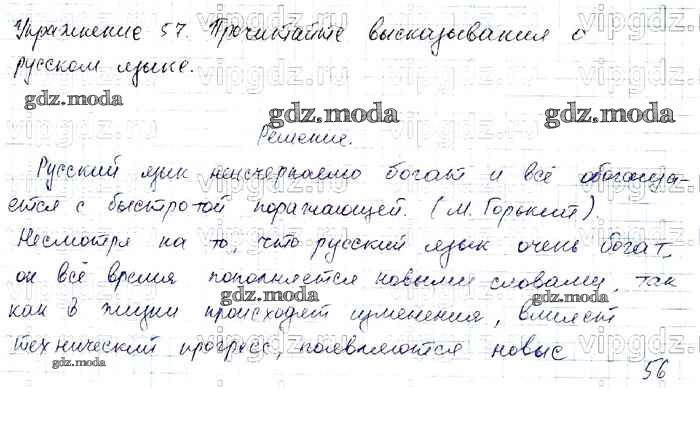 Упражнение 57. Прочитайте высказывания о
русском языке.
gdz.moda
gdz.moda
gdz.moda
Решение.
Русский язык неисчерпаемо богат и всё обогаща-
ется с быстротой поражающей. (М. Горький).
Несмотря на то, что русский язык очень богат,
он всё время пополняется новыми словами, так
gdz.moda
gdz.moda
как в жизни происходят изменения, влияет
технический прогресс, появляются новые
gdz.moda
gdz.moda
56